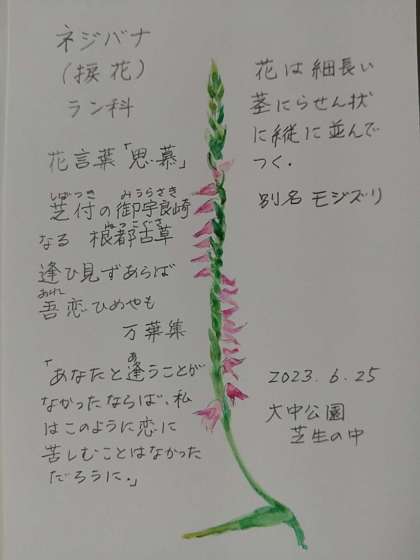 ネジバナ
(捩花)
ラン科
花言葉「思慕」
しばつき みうらさき
芝付の御宇良崎
ねつこぐさ
なる 根都古草
逢ひ見ずあらば
あれ
吾恋ひめやも
万葉集
「あなたと逢うことが
あ
なかったならば、私
はこのように恋に
苦しむことはなかった
だろうに。」
花は細長い
茎にらせん状
に縦に並んで
つく.
別名 モジズリ
2023.6.25
大中公園
芝生の中